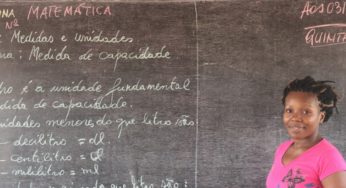 INA MATEMÁTICA
Aos 031
Nº
QUINTA
: Medidas e unidades
ma: Medida de capacidade
tro é a unidade fundamental
edida de capacidade.
nidades menores do que litro são:
- decilitro = dl
- centilitro = cl
- mililitro = ml
que litro são: